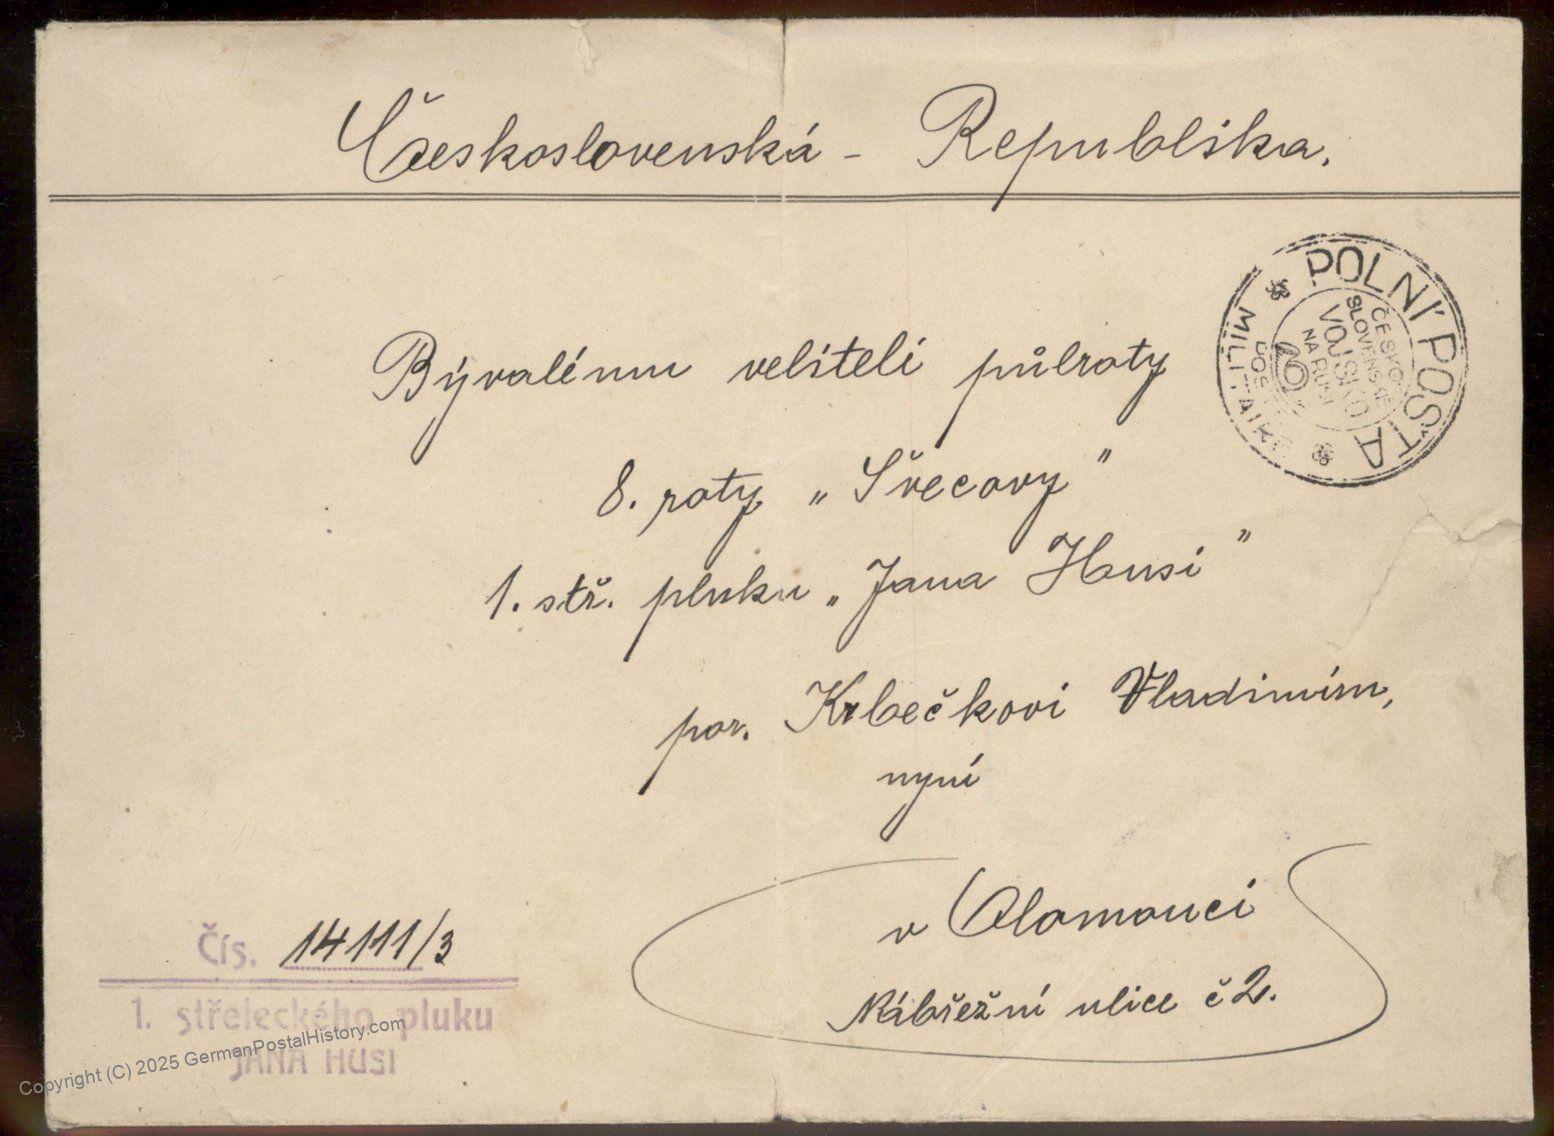 Československá - Republika.
POLNÍ POŠTA
MILITAIRE
ČESKO
SLOVENSKÉ
VOJSKO
NA RUSI
Bývalému veliteli půlroty
8. roty „Švecovy”
1. stř. pluku „Jana Husi”
por. Krbečkovi Vladimíru,
nyní
v Olomouci
Nábřežní ulice č 2.
Čís. 14111/3
1. střeleckého pluku
JANA HUSI
Copyright (C) 2025 GermanPostalHistory.com